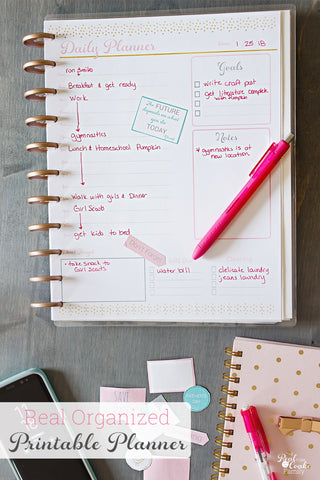 Daily Planner
1 25 18
run 5 miles
Breakfast & get ready
Work
gymnastics
Lunch & Homeschool Pumpkin
Walk with girls & Dinner
Girl Scouts
get kids to bed
* take snack to
Girl Scouts
The FUTURE
depends on what
you do
TODAY
Goals
write craft post
get literature complete
with Pumpkin
Notes
* gymnastics is at
new location
Don't Forget
water bill
delicate laundry
jeans laundry
SAVE
Real Organized
Printable Planner
The Real Thing
with the
Coake
Family